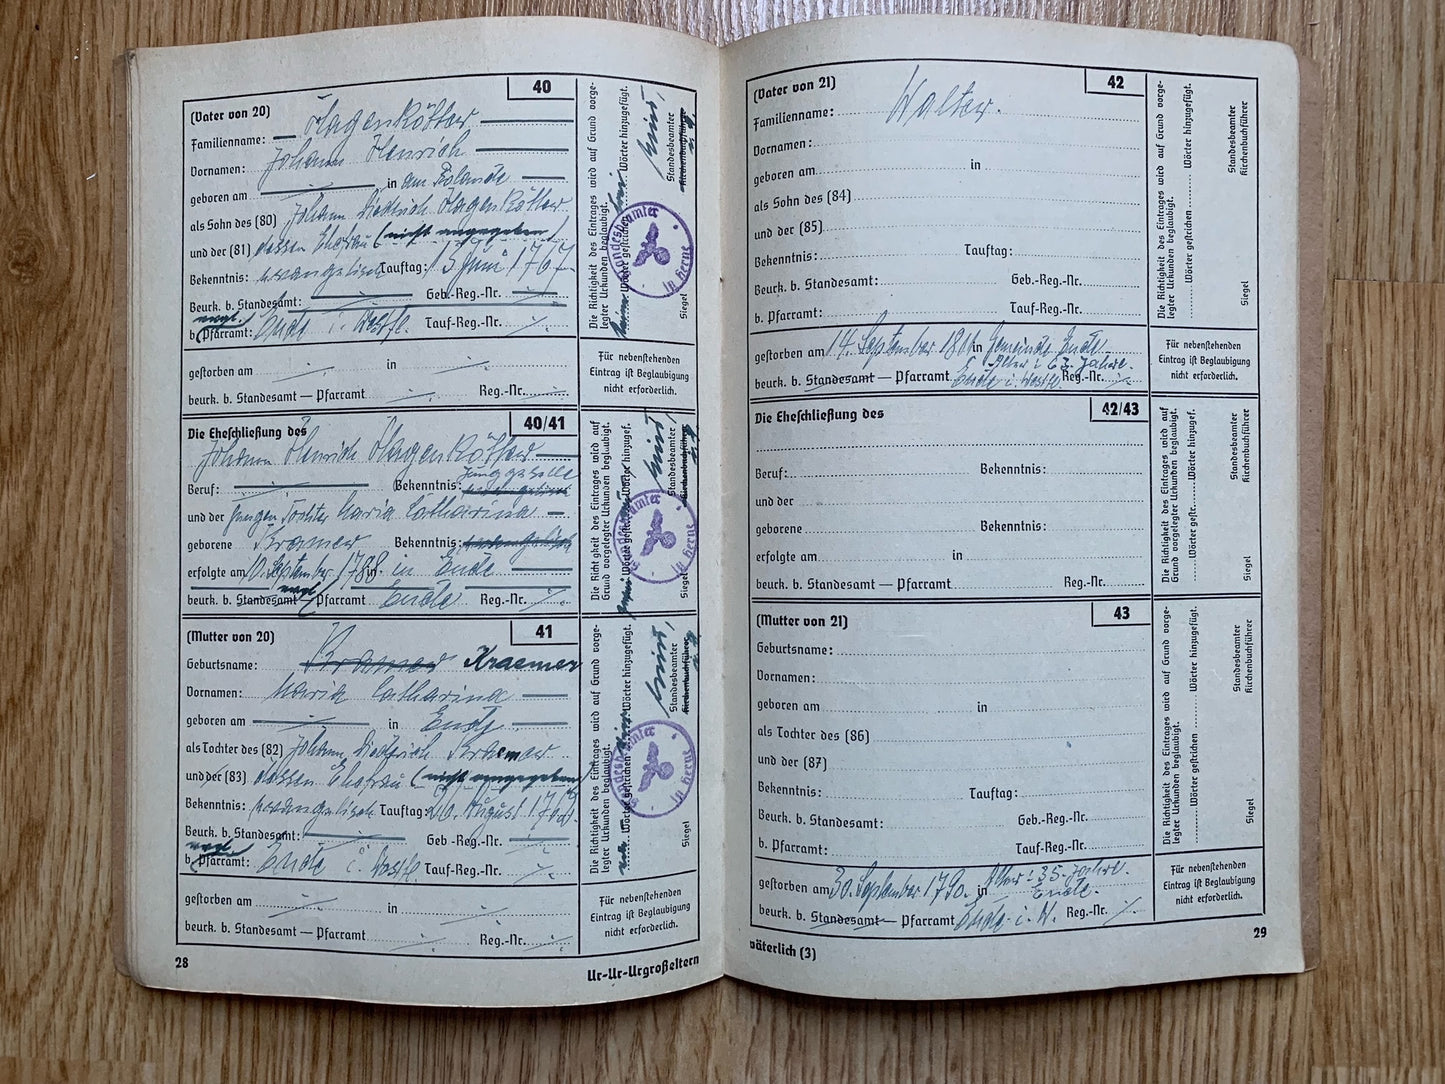 40
(Vater von 20)
Familienname: Hagenkötter
Vornamen: Johann Henrich
geboren am in am Bolande
als Sohn des (80) Johann Diedrich Hagenkötter
und der (81) dessen Ehefrau (nicht angegeben)
Bekenntnis: evangelisch Tauftag: 15. Juni 1767
Beurk. b. Standesamt: Geb.-Reg.-Nr.
evgl.
b. (Pfarramt: Ende i. Westf. Tauf-Reg.-Nr. ./.
gestorben am ./. in ./.
beurk. b. Standesamt — Pfarramt ./. Reg.-Nr. ./.
Die Richtigkeit des Eintrages wird auf Grund vorge-
legter Urkunden beglaubigt.
Wörter gestrichen Wörter hinzugefügt.
Standesbeamter
Kirchenbuchführer
Siegel
Standesbeamter in Herne
Für nebenstehenden
Eintrag ist Beglaubigung
nicht erforderlich.
40/41
Die Eheschließung des
Johann Henrich Hagenkötter
Junggeselle
Beruf: ./. (Bekenntnis:
und der Jungfer Tochter Maria Catharina
geborene Kramer Bekenntnis:
erfolgte am 10. September 1788 in in Ende
evgl.
beurk. b. Standesamt (Pfarramt Ende Reg.-Nr. ./.
Die Richtigkeit des Eintrages wird auf
Grund vorgelegter Urkunden beglaubigt.
Wörter gestrichen Wörter hinzugef.
Standesbeamter
Kirchenbuchführer
Siegel
Standesbeamter in Herne
41
(Mutter von 20)
Geburtsname: Kramer Kraemer
Vornamen: Maria Catharina
geboren am ./. in Ende
als Tochter des (82) Johann Diedrich Kraemer
und der (83) dessen Ehefrau (nicht angegeben)
Bekenntnis: evangelisch Tauftag: 20. August 1762.
Beurk. b. Standesamt: ./. Geb.-Reg.-Nr. ./.
evgl.
b. (Pfarramt: Ende i. Westf. Tauf-Reg.-Nr. ./.
gestorben am ./. in ./.
beurk. b. Standesamt — Pfarramt ./. Reg.-Nr. ./.
Die Richtigkeit des Eintrages wird auf Grund vorge-
legter Urkunden beglaubigt.
Wörter gestrichen Wörter hinzugefügt.
Standesbeamter
Kirchenbuchführer
Siegel
Standesbeamter in Herne
Für nebenstehenden
Eintrag ist Beglaubigung
nicht erforderlich.
28
Ur-Ur-Urgroßeltern
42
(Vater von 21)
Familienname: Walter.
Vornamen:
geboren am in
als Sohn des (84)
und der (85)
Bekenntnis: Tauftag:
Beurk. b. Standesamt: Geb.-Reg.-Nr.
b. Pfarramt: Tauf-Reg.-Nr.
gestorben am 14. September in Gemeinde Ende
Alter: 63 Jahre.
beurk. b. Standesamt — Pfarramt Ende i. Westf. Reg.-Nr. ./.
Die Richtigkeit des Eintrages wird auf Grund vorge-
legter Urkunden beglaubigt.
Wörter gestrichen Wörter hinzugefügt.
Standesbeamter
Kirchenbuchführer
Siegel
Für nebenstehenden
Eintrag ist Beglaubigung
nicht erforderlich.
42/43
Die Eheschließung des
Beruf: Bekenntnis:
und der
geborene Bekenntnis:
erfolgte am in
beurk. b. Standesamt — Pfarramt Reg.-Nr.
Die Richtigkeit des Eintrages wird auf
Grund vorgelegter Urkunden beglaubigt.
Wörter gestr. Wörter hinzugef.
Standesbeamter
Kirchenbuchführer
Siegel
43
(Mutter von 21)
Geburtsname:
Vornamen:
geboren am in
als Tochter des (86)
und der (87)
Bekenntnis: Tauftag:
Beurk. b. Standesamt: Geb.-Reg.-Nr.
b. Pfarramt: Tauf-Reg.-Nr.
Alter: 35 Jahre.
gestorben am 30. September 1790. in Ende.
beurk. b. Standesamt — Pfarramt Ende i. W. Reg.-Nr. ./.
Die Richtigkeit des Eintrages wird auf Grund vorge-
legter Urkunden beglaubigt.
Wörter gestrichen Wörter hinzugefügt.
Standesbeamter
Kirchenbuchführer
Siegel
Für nebenstehenden
Eintrag ist Beglaubigung
nicht erforderlich.
väterlich (3)
29